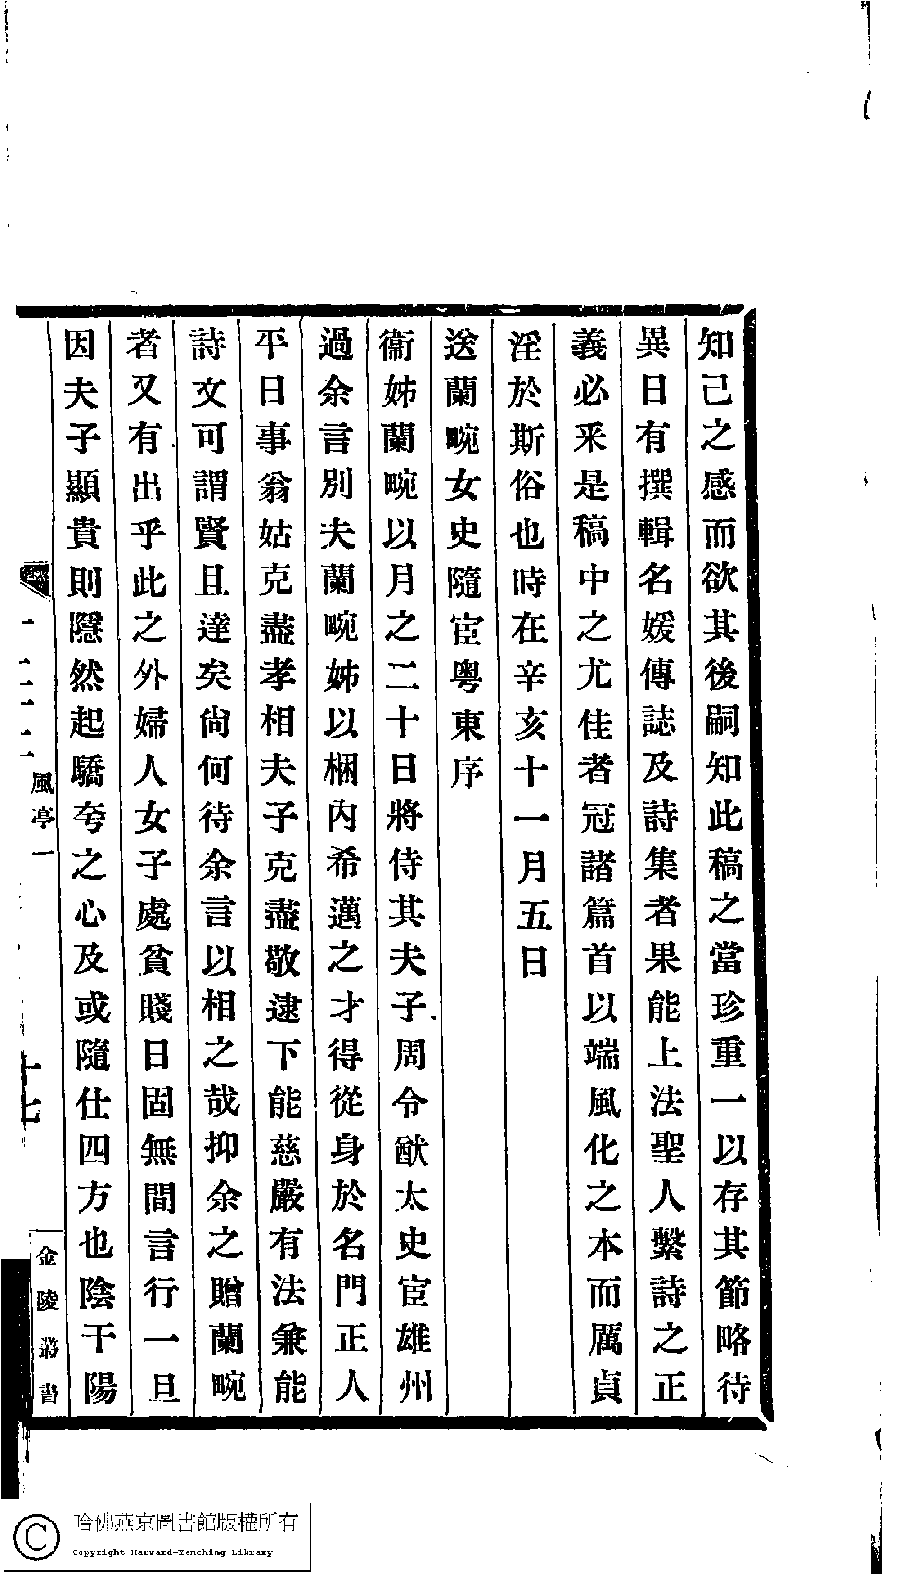 知己之感而欲其後嗣知此稿之當珍重一以存其節略待
異日有撰輯名媛傳誌及詩集者果能上法聖人繫詩之正
義必釆是稿中之尤佳者冠諸篇首以端風化之本而厲貞
淫於斯俗也時在辛亥十一月五日
送蘭畹女史隨宦粵東序
衞姊蘭畹以月之二十日將侍其夫子周令猷太史宦雄州
過余言別夫蘭畹姊以梱內希邁之才得從身於名門正人
平日事翁姑克盡孝相夫子克盡敬逮下能慈嚴有法兼能
詩文可謂賢且達矣尙何待余言以相之哉抑余之贈蘭畹
者又有出乎此之外婦人女子處貧賤日固無間言行一旦
因夫子顯貴則隱然起驕夸之心及或隨仕四方也陰干陽
風亭一
十七
金陵叢書
哈佛燕京圖書館版權所有
Copyright Harvard-Yenching Library